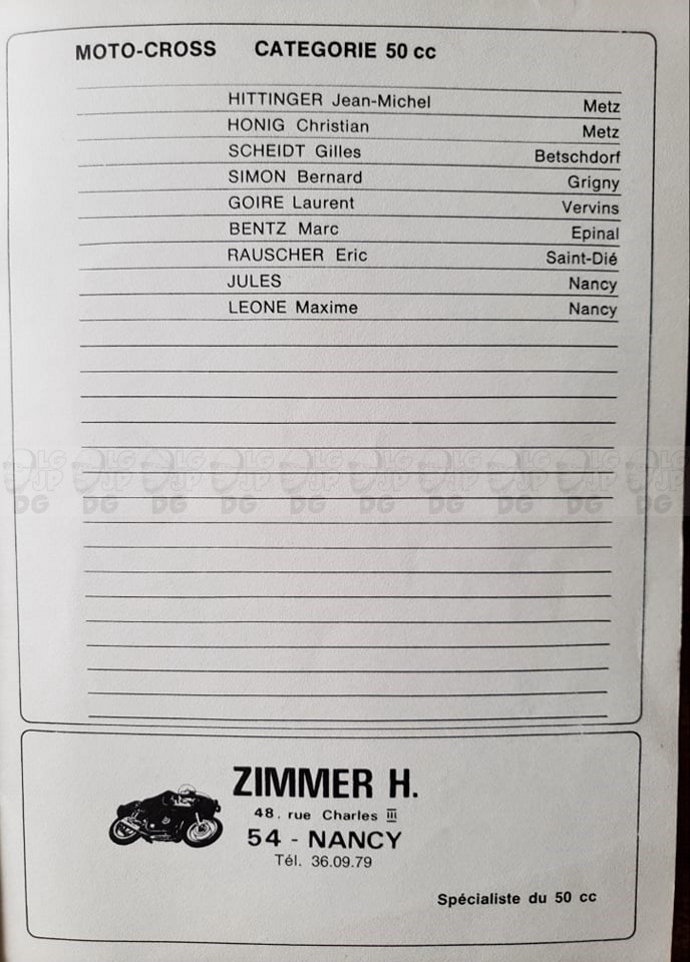 MOTO-CROSS CATEGORIE 50 cc
HITTINGER Jean-Michel Metz
HONIG Christian Metz
SCHEIDT Gilles Betschdorf
SIMON Bernard Grigny
GOIRE Laurent Vervins
BENTZ Marc Epinal
RAUSCHER Eric Saint-Dié
JULES Nancy
LEONE Maxime Nancy
LG LG LG LG LG LG LG LG LG LG
JP JP JP JP JP JP JP JP JP JP
DG DG DG DG DG DG DG DG DG DG
ZIMMER H.
48. rue Charles III
54 - NANCY
Tél. 36.09.79
Spécialiste du 50 cc